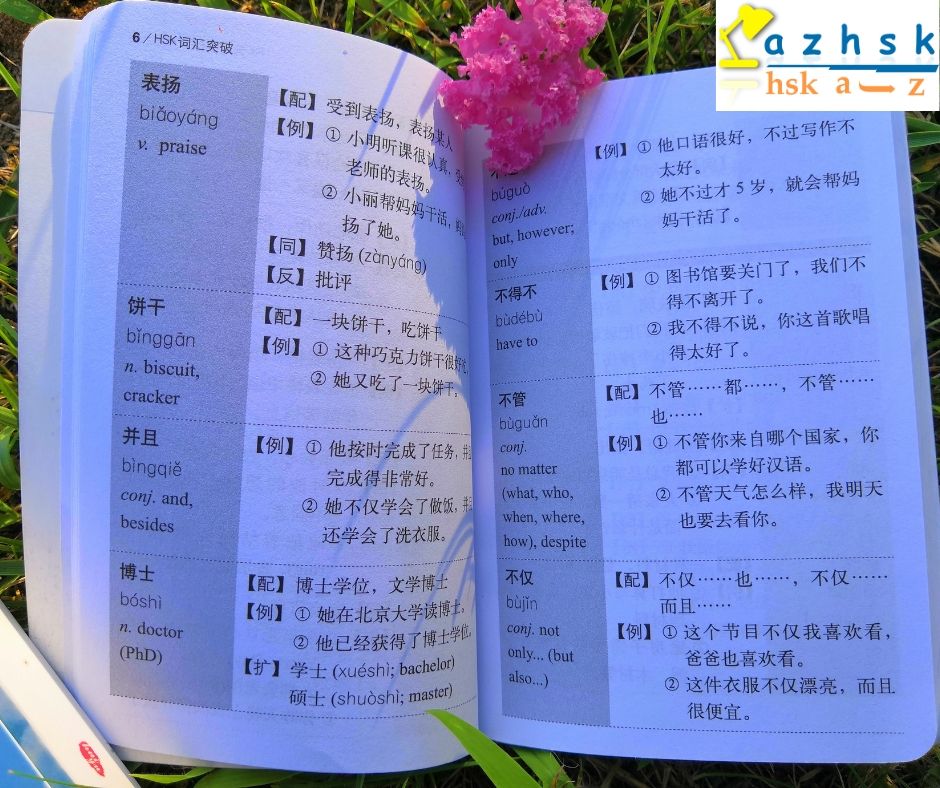 azhsk
hsk a z
6 / HSK词汇突破
表扬
biǎoyáng
v. praise
【配】受到表扬，表扬某人
【例】① 小明听课很认真，
老师的表扬。
② 小丽帮妈妈干活，
扬了她。
【同】赞扬 (zànyáng)
【反】批评
饼干
bǐnggān
n. biscuit,
cracker
【配】一块饼干，吃饼干
【例】① 这种巧克力饼干很好
② 她又吃了一块饼干。
并且
bìngqiě
conj. and,
besides
【例】① 他按时完成了任务，并且
完成得非常好。
② 她不仅学会了做饭，并且
还学会了洗衣服。
博士
bóshì
n. doctor
(PhD)
【配】博士学位，文学博士
【例】① 她在北京大学读博士。
② 他已经获得了博士学位。
【扩】学士 (xuéshì; bachelor)
硕士 (shuòshì; master)
búguò
conj./adv.
but, however;
only
【例】① 他口语很好，不过写作不
太好。
② 她不过才 5 岁，就会帮妈
妈干活了。
不得不
bùdébù
have to
【例】① 图书馆要关门了，我们不
得不离开了。
② 我不得不说，你这首歌唱
得太好了。
不管
bùguǎn
conj.
no matter
(what, who,
when, where,
how), despite
【配】不管……都……，不管……
也……
【例】① 不管你来自哪个国家，你
都可以学好汉语。
② 不管天气怎么样，我明天
也要去看你。
不仅
bùjǐn
conj. not
only... (but
also...)
【配】不仅……也……，不仅……
而且……
【例】① 这个节目不仅我喜欢看，
爸爸也喜欢看。
② 这件衣服不仅漂亮，而且
很便宜。